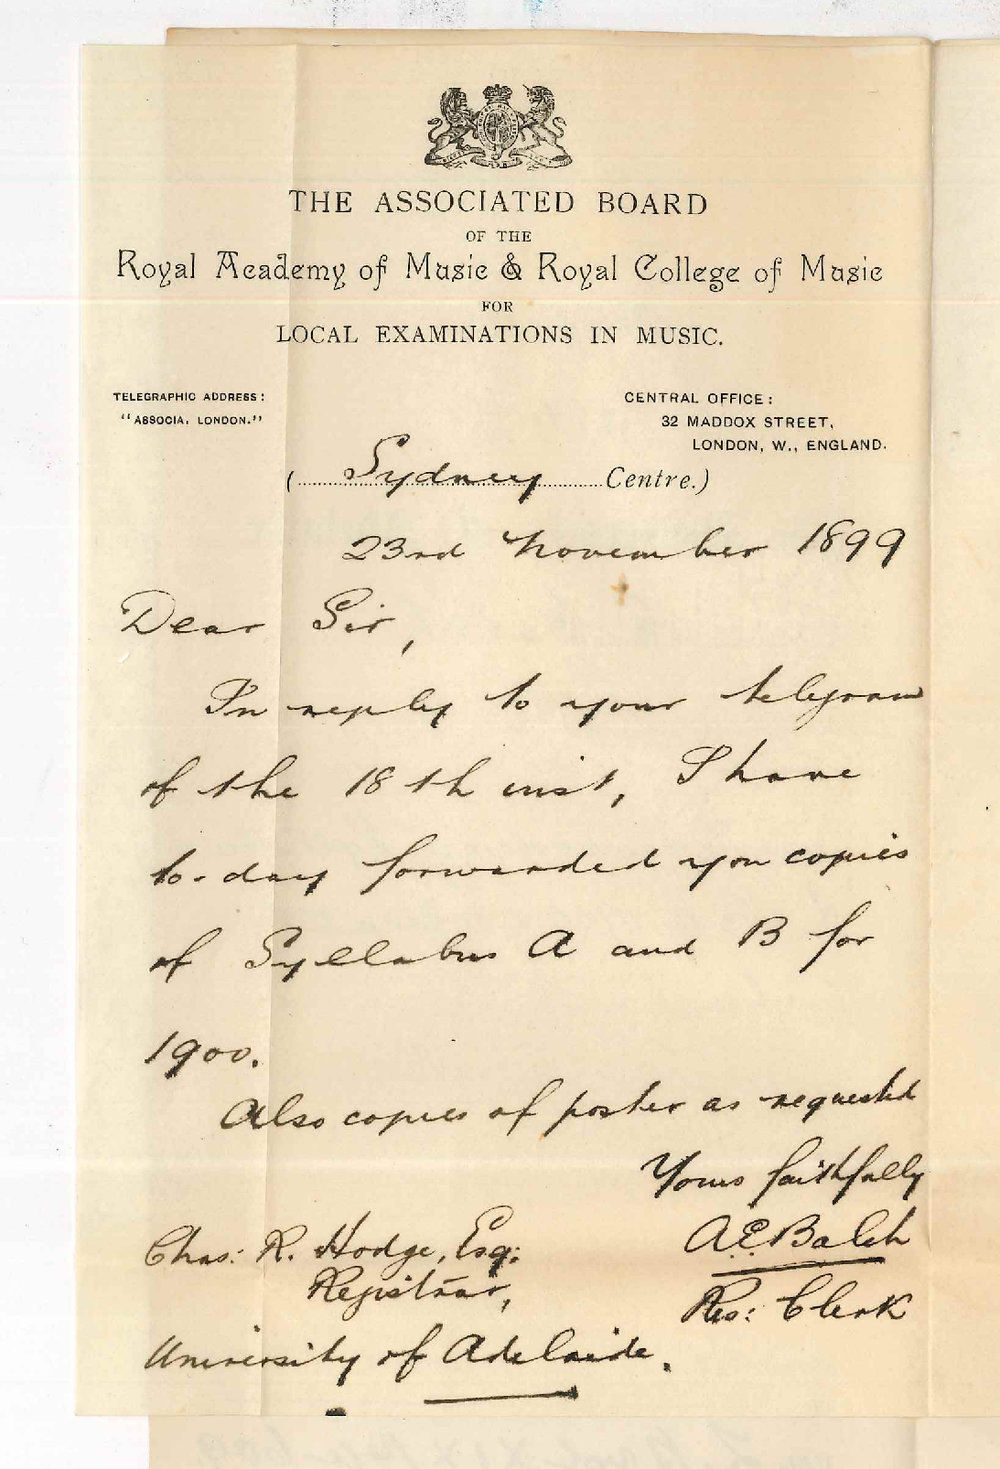 THE ASSOCIATED BOARD
OF THE
Royal Academy of Music & Royal College of Music
FOR
LOCAL EXAMINATIONS IN MUSIC.
TELEGRAPHIC ADDRESS:
"ASSOCIA, LONDON."
CENTRAL OFFICE:
32 MADDOX STREET,
LONDON, W., ENGLAND.
(Sydney Centre.)
23rd November 1899
Dear Sir,
In reply to your telegram
of the 18th inst, I have
to-day forwarded you copies
of Syllabus A and B for
1900.
Also copies of poster as requested
Yours faithfully
A.E. Balch
Res: Clerk
Chas: R. Hodge, Esq:
Registrar,
University of Adelaide.